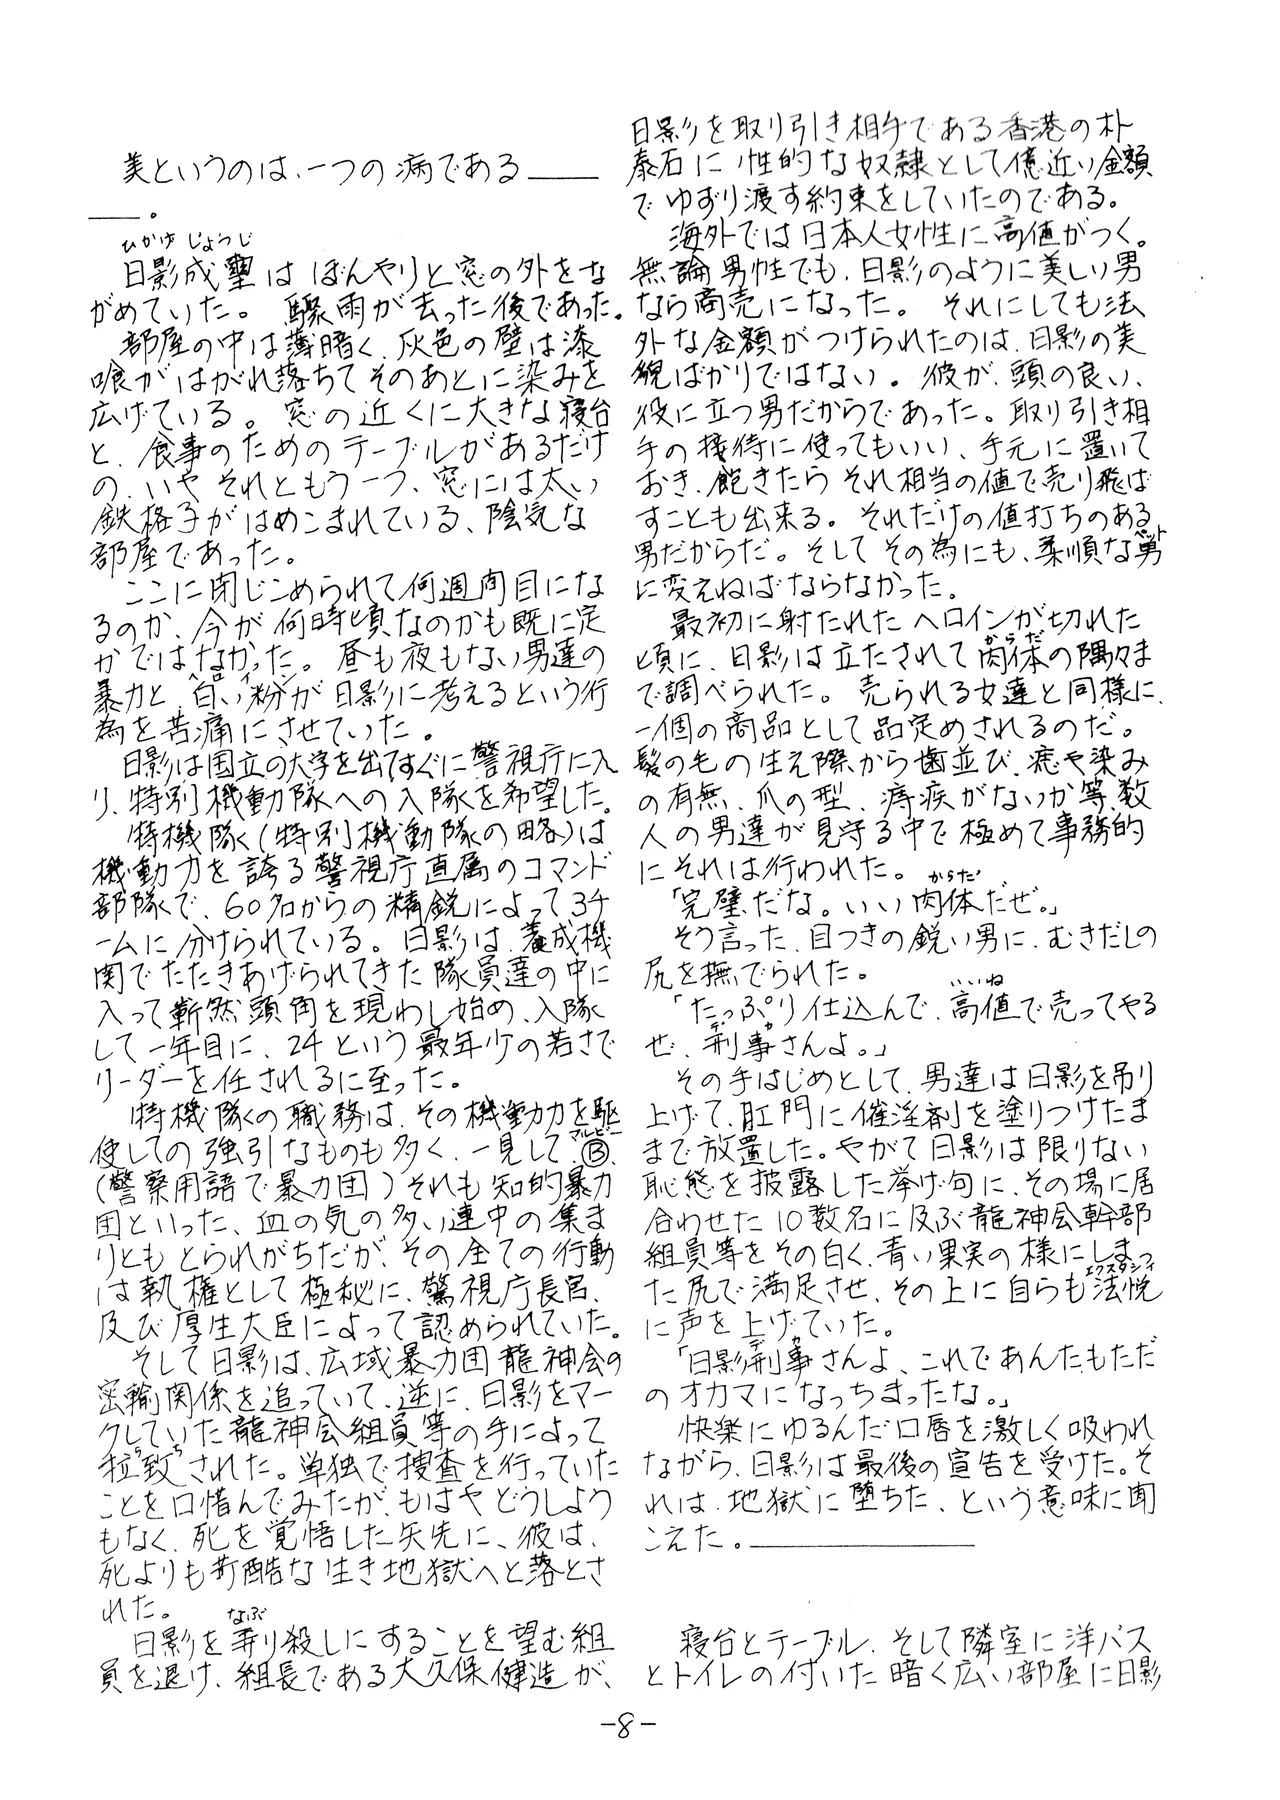 美というのは、一つの病である――
――。
ひかげ じょうじ
日影成聖は ぼんやりと窓の外をな
がめていた。 驟雨が去った後であった。
部屋の中は薄暗く、灰色の壁は漆
喰がはがれ落ちてそのあとに染みを
広げている。 窓の近くに大きな寝台
と、食事のためのテーブルがあるだけ
の、いや それともう一つ、窓には太い
鉄格子がはめこまれている、陰気な
部屋であった。
ここに閉じこめられて何週間目にな
るのか、今が何時頃なのかも既に定
かではなかった。 昼も夜もない男達の
ヘロイン
暴力と、白い粉が日影に考えるという行
為を苦痛にさせていた。
日影は国立の大学を出てすぐに警視庁に入
り、特別機動隊への入隊を希望した。
特機隊く(特別機動隊の略)は
機動力を誇る警視庁直属のコマンド
部隊で、60名からの精鋭によって3チ
ームに分けられている。 日影は、養成機
関でたたきあげられてきた隊員達の中に
入って斬然頭角を現わし始め、入隊
して一年目に、24という最年少の若さで
リーダーを任されるに至った。
特機隊くの職務は、その機動力を駆
マルビー
使しての強引なものも多く、一見してⒷ、
(警察用語で暴力団)それも知的暴力
団といった、血の気の多い連中の集ま
りとも とられがちだが、その全ての行動
は執権として極秘に、警視庁長官、
及び厚生大臣によって認められていた。
そして日影は、広域暴力団龍神会の
密輸関係を追っていて、逆に、日影をマー
クしていた龍神会組員等の手によって
らち
拉致された。単独で捜査を行っていた
ことを口惜んでみたが、もはや どうしよう
もなく、死を覚悟した矢先に、彼は、
死よりも苛酷な生き地獄へと落とさ
れた。
なぶ
日影を弄り殺しにすることを望む組
員を退け、組長である大久保健造が、
日影を取り引き相手である香港の朴
泰石に 性的な奴隷として億近い金額
で ゆずり渡す約束をしていたのである。
海外では日本人女性に高値がつく。
無論男性でも、日影のように美しい男
なら商売になった。 それにしても法
外な金額がつけられたのは、日影の美
貌ばかりではない。 彼が、頭の良い、
役に立つ男だからであった。取り引き相
手の接待に使ってもいい、手元に置いて
おき、飽きたら それ相当の値で売り飛ば
すことも出来る。それだけの値打ちのある
ペット
男だからだ。そして その為にも、柔順な男
に変えねばならなかった。
最初に射たれた ヘロインが切れた
からだ
頃に、日影は立たされて肉体の隅々ま
で調べられた。 売られる女達と同様に、
一個の商品として品定めされるのだ。
髪の毛の生え際から歯並び、痣や染み
の有無、爪の型、痔疾がないか等、数
人の男達が見守る中で極めて事務的
にそれは行われた。
からだ
「完璧だな。いい肉体だぜ。」
そう言った、目つきの鋭い男に、むきだしの
尻を撫でられた。
いいね
「たっぷり仕込んで、高値で売ってやる
デカ
ぜ、刑事さんよ。」
その手はじめとして、男達は日影を吊り
上げて、肛門に催淫剤を塗りつけたま
まで放置した。やがて日影は限りない
恥態を披露した挙げ句に、その場に居
合わせた10数名に及ぶ龍神会幹部
組員等をその白く、青い果実の様にしまっ
エクスタシィ
た尻で満足させ、その上に自らも法悦
に声を上げていた。
デカ
「日影刑事さんよ、これであんたもただ
のオカマになっちまったな。」
快楽にゆるんだ口唇を激しく吸われ
ながら、日影は最後の宣告を受けた。そ
れは、地獄に堕ちた、という意味に聞
こえた。――――――
寝台とテーブル、そして隣室に洋バス
とトイレの付いた暗く広い部屋に日影
-8-